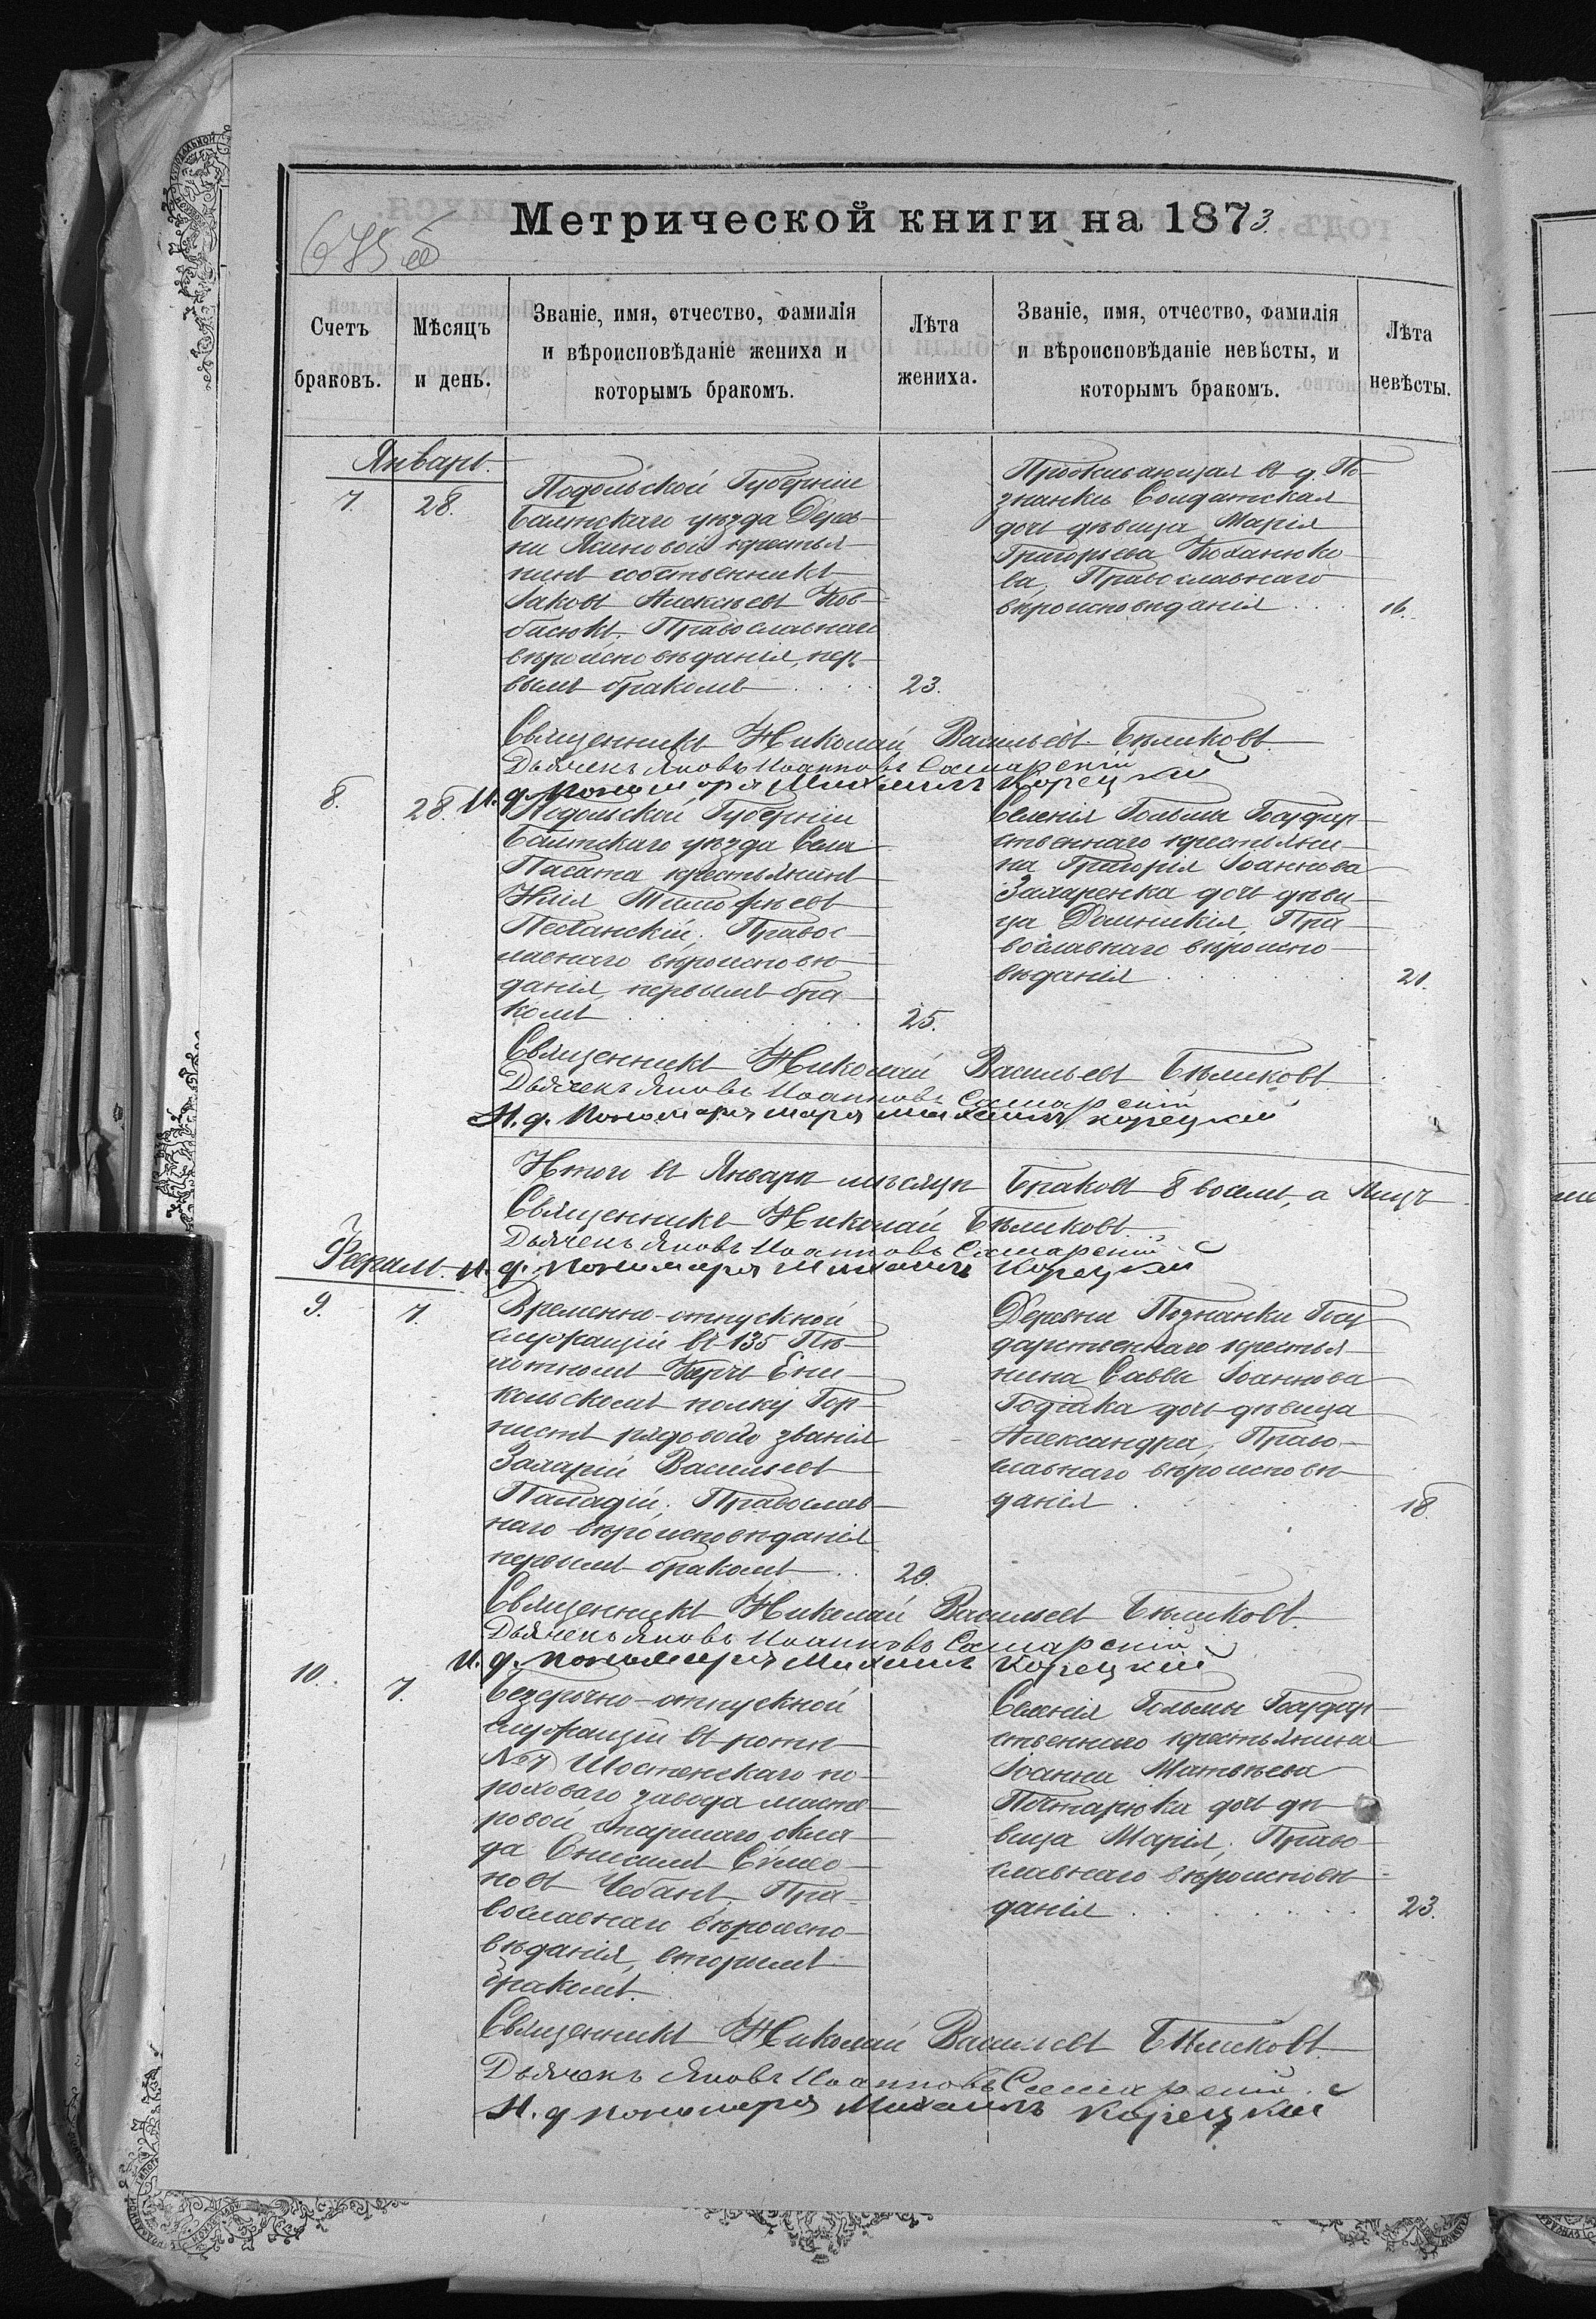 Метрической книги на 1873.
Счетъ браковъ.
Мѣсяцъ и день.
Званіе, имя, отчество, фамилія
и вѣроисповѣданіе жениха и
которымъ бракомъ.
Лѣта жениха.
Званіе, имя, отчество, фамилія
и вѣроисповѣданіе невѣсты, и
которымъ бракомъ.
Лѣта невѣсты.
Январь.
7.
28.
Подольской Губерніи
Балтскаго уѣзда Дерев-
ни Ясиновой крестья-
нинъ собственникъ
Іаковъ Алексѣевъ Ков-
басюкъ, Православнаго
вѣроисповѣданія, пер-
вымъ бракомъ
23.
Проживающая въ д. По-
знанкѣ Солдатская
дочь дѣвица Марія
Григорьева Коханюко-
ва, Православнаго
вѣроисповѣданія
16.
Священникъ Николай Васильевъ Бѣликовъ
Дьячекъ Яковъ Иоанновъ Самарскій
И. д. Пономаря Михаилъ Корецкий
8.
28.
Подольской Губерніи
Балтскаго уѣзда Села
Пасата крестьянинъ
Илія Тимофѣевъ
Песчанскій, Правос-
лавнаго вѣроисповѣ-
данія, первымъ бра-
комъ
25.
Селенія Гольмы Государ-
ственнаго крестьяни-
на Григорія Іоаннова
Захаренка дочь дѣви-
ца Домникія, Пра-
вославнаго вѣроиспо-
вѣданія
21.
Священникъ Николай Васильевъ Бѣликовъ
Дьячекъ Яковъ Иоанновъ Самарскій
И. д. Пономаря Михаилъ Корецкий
Итого въ Январѣ мѣсяцѣ Браковъ 8 восемь, а лицъ
Священникъ Николай Бѣликовъ
Дьячекъ Яковъ Иоанновъ Самарскій
И. д. Пономаря Михаилъ Корецкий
Февраль.
9.
7.
Временно-отпускной
служащій въ 135 Пѣ-
хотномъ Керчь Ени-
кольскомъ полку Гор-
нистъ рядового званія
Захарій Васильевъ
Паладій, Православ-
наго вѣроисповѣданія
первымъ бракомъ
29.
Деревни Познанки Госу-
дарственнаго крестья-
нина Саввы Іоаннова
дочь дѣвица
Александра, Право-
славнаго вѣроисповѣ-
данія
18.
Священникъ Николай Васильевъ Бѣликовъ
Дьячекъ Яковъ Иоанновъ Самарскій
И. д. пономаря Михаилъ Корецкий
10.
7.
Безсрочно-отпускной
служащій въ ротѣ
№ 7 Шостенскаго по-
роховаго завода масте-
ровой старшаго окла-
да Онисимъ Симео-
новъ Чебанъ, Пра-
вославнаго вѣроиспо-
вѣданія, вторымъ
бракомъ.
Селенія Гольмы Государ-
ственнаго крестьянина
Іоанна Матвѣева
дочь дѣ-
вица Марія, Право-
славнаго вѣроисповѣ-
данія
23.
Священникъ Николай Васильевъ Бѣликовъ
Дьячекъ Яковъ Иоанновъ Самарскій
И. д пономаря Михаилъ Корецкий